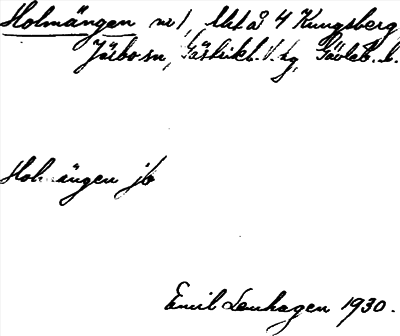 Holmängen nr 1, Utt å 4 Kungsberg
Järbo sn, Gästrikl. V. tg, Gävleb. l.
Holmängen jb
Emil Lenhagen 1930.